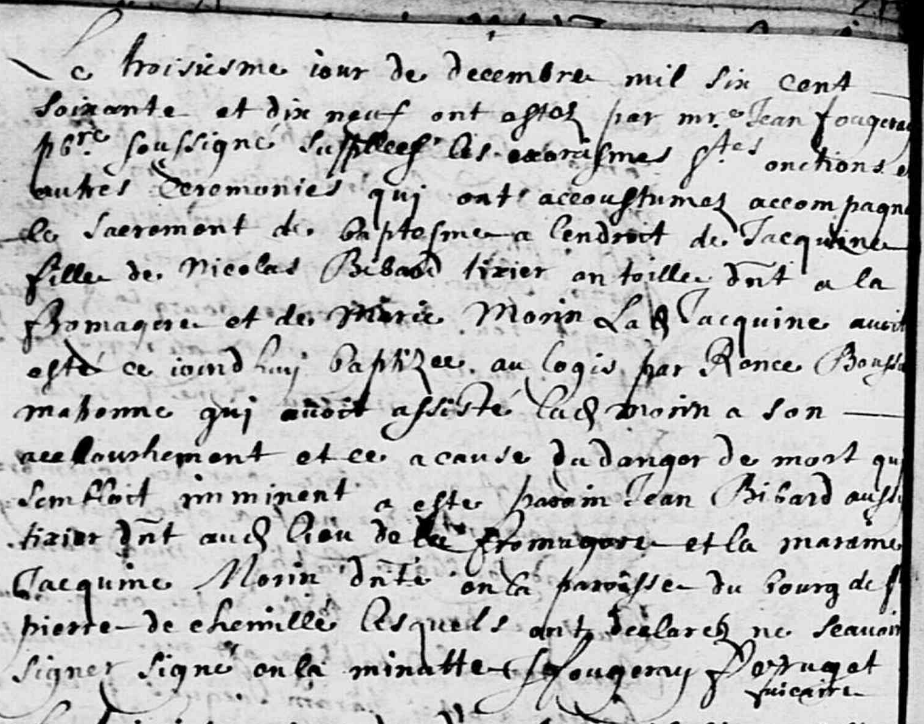 Le troisiesme iour de decembre mil six cent
soixante et dix neuf ont estez par mr.e Jean fougeray
pbre soussigné supplees les exorcismes stes onctions et
autres Ceremonies qui ont accoustumez accompagne
le Sacrement de baptesme a lendroit de Jacquine
fille de Nicolas Bibard tixier en toille dnt a la
fromagere et de Marie Morin Lad Jacquine avoit
esté ce iourdhuy baptizee au logis par Renee Bouss
matronne qui avoit assisté lad morin a son
accouchement et ce a cause du danger de mort qui
sembloit imminent a esté parain Jean Bibard aussy
tixier dnt aud lieu de la fromagere et la maraine
Jacquine Morin dnte en la paroisse du bourg de st
pierre de chemillé lesquels ont declarez ne scavoir
signer signé en la minutte J fougeray
vicaire